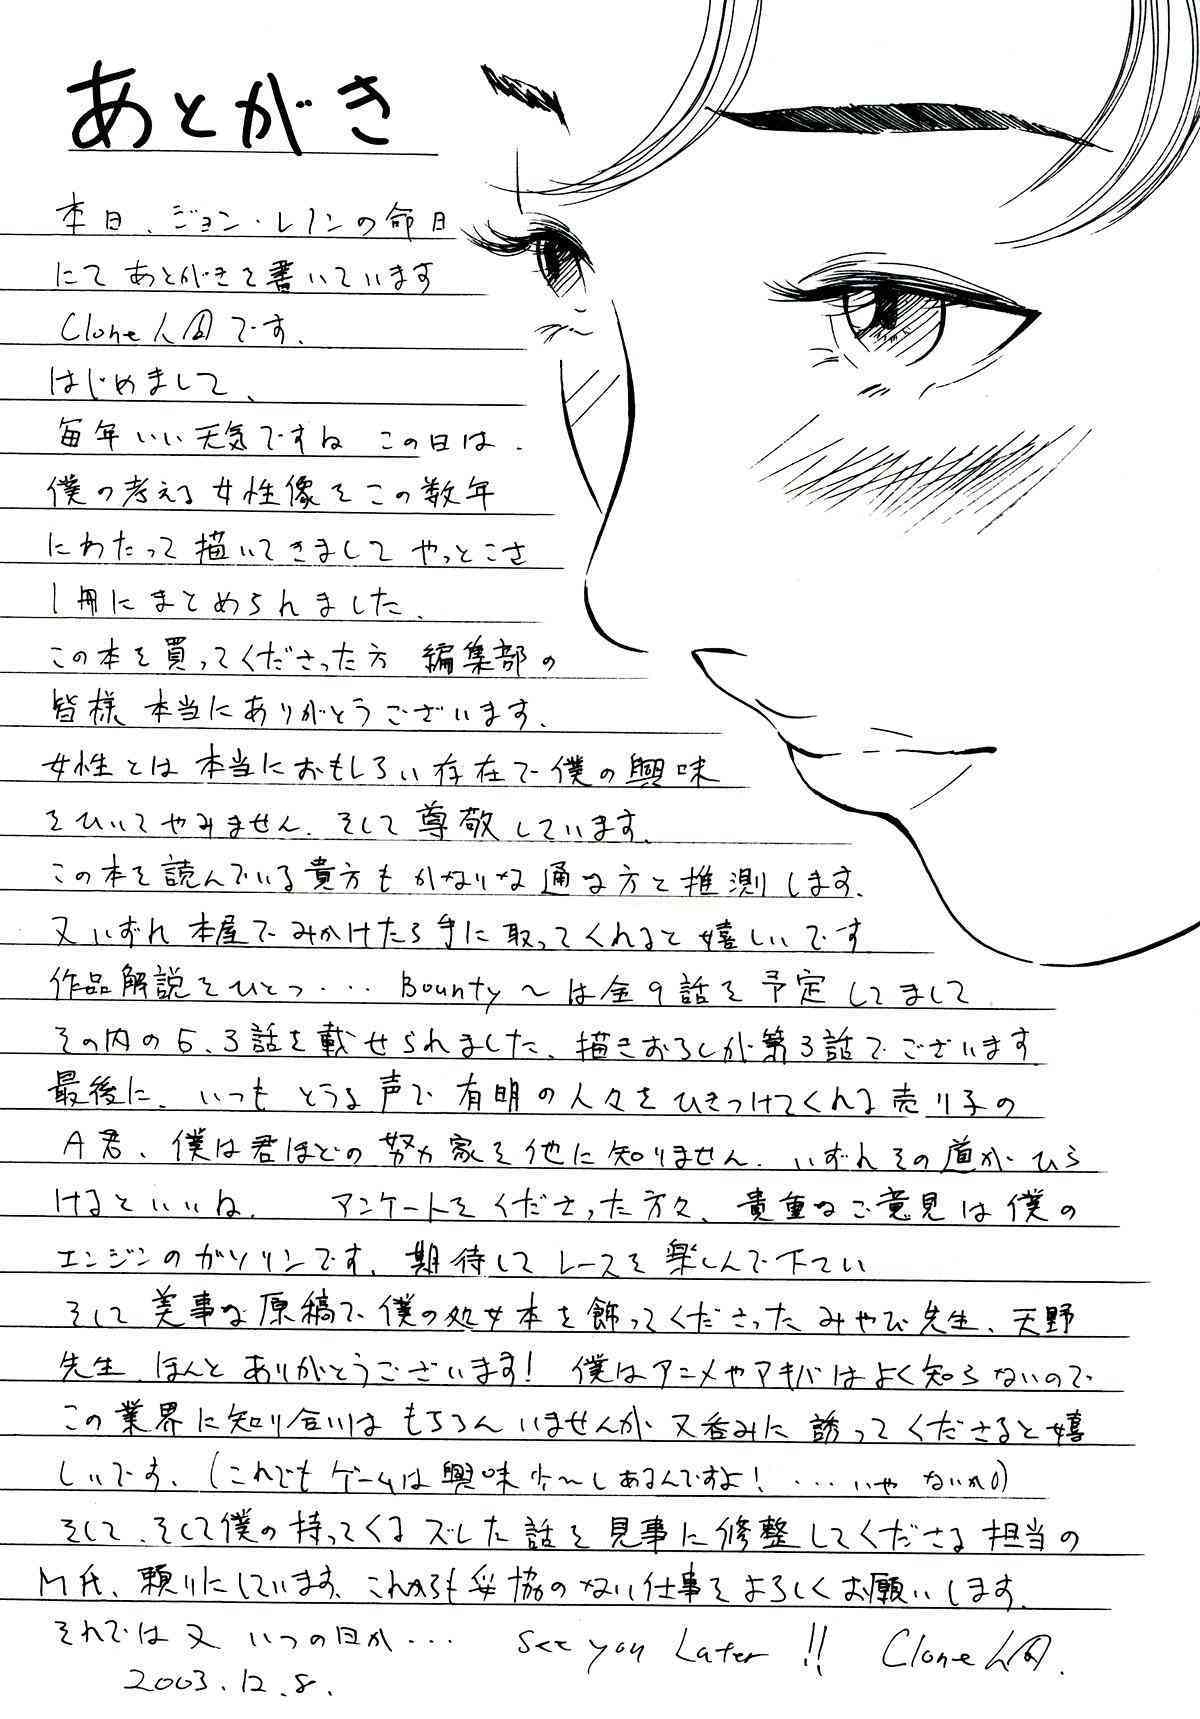 あとがき
本日、ジョン・レノンの命日
にて あとがきを書いています
Clone人間です.
はじめまして、
毎年いい天気ですね この日は.
僕の考える女性像をこの数年
にわたって描いてきまして やっとこさ
1冊にまとめられました.
この本を買ってくださった方 編集部の
皆様 本当にありがとうございます.
女性とは本当におもしろい存在で僕の興味
をひいてやみません. そして尊敬しています.
この本を読んでいる貴方もかなりな通な方と推測します.
又いずれ本屋でみかけたら手に取ってくれると嬉しいです
作品解説をひとつ・・・ Bounty〜は全9話を予定してまして
その内の5、3話を載せられました、描きおろしが第3話でございます
最後に、いつも とうる声で有明の人々をひきつけてくれる売り子の
A君、僕は君ほどの努力家を他に知りません. いずれその道がひら
けるといいね. アンケートをくださった方々、貴重なご意見は僕の
エンジンのガソリンです、期待してレースを楽しんで下さい
そして美事な原稿で僕の処女本を飾ってくださった みやび先生、天野
先生 ほんと ありがとうございます! 僕はアニメやアキバはよく知らないので
この業界に知り合いは もちろん いませんが 又呑みに誘ってくださると嬉
しいです、(これでもゲームは興味少〜しあるんですよ! ・・・いや ないかも)
そして、そして僕の持ってくるズレた話を見事に修整してくださる担当の
M氏、頼りにしています、これからも妥協のない仕事をよろしくお願いします.
それでは又 いつの日か・・・ See you Later !! Clone人間.
2003.12.8.